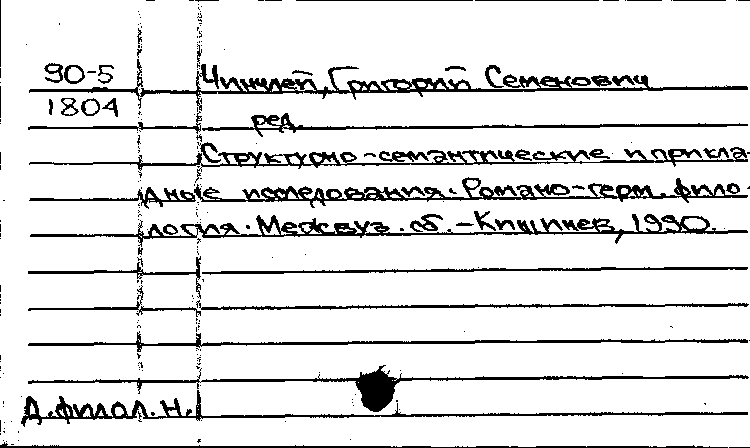 90-5 Чинчлей, Григорий Семенович
1804
ред.
Структурно-семантические и прикла-
дные исследования. Романо-герм. фило-
логия. Межвуз. сб. - Кишинев, 1990.
Д.филол.н.